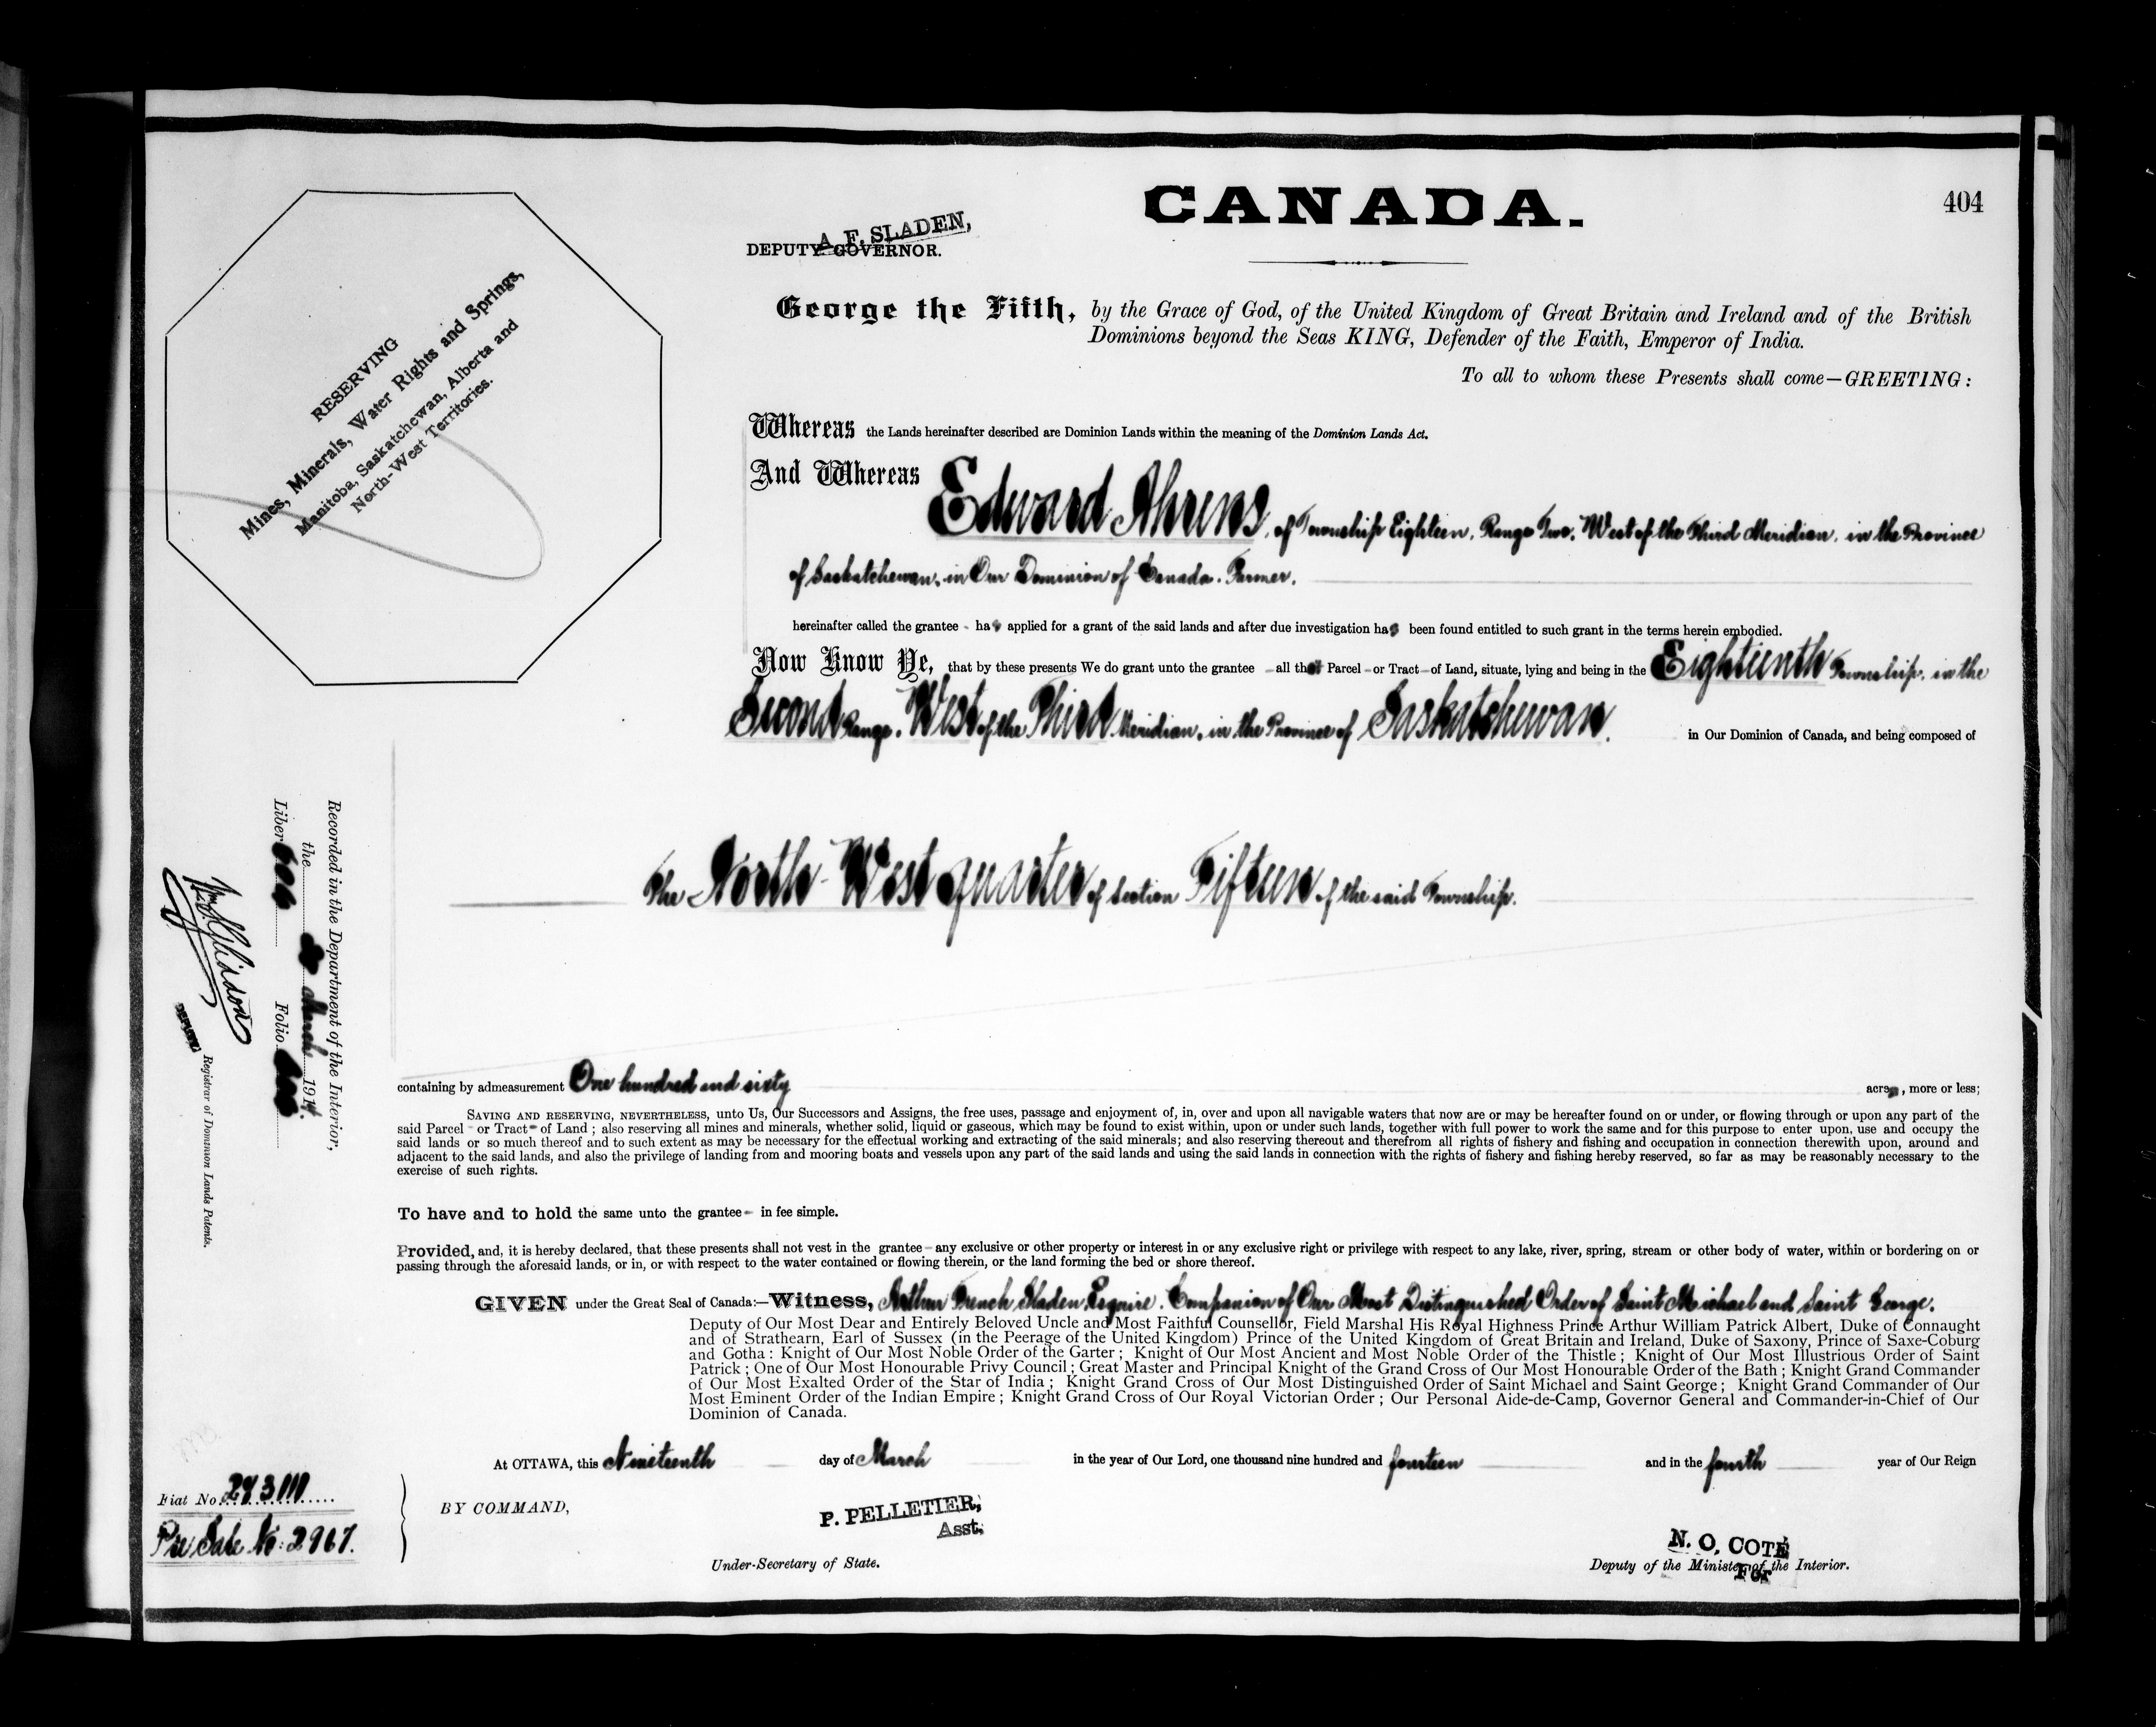 CANADA.
404
A. F. SLADEN,
DEPUTY GOVERNOR.
George the Fifth, by the Grace of God, of the United Kingdom of Great Britain and Ireland and of the British
Dominions beyond the Seas KING, Defender of the Faith, Emperor of India.
To all to whom these Presents shall come—GREETING:
RESERVING
Mines, Minerals, Water Rights and Springs,
Manitoba, Saskatchewan, Alberta and
North-West Territories.
Whereas the Lands hereinafter described are Dominion Lands within the meaning of the Dominion Lands Act.
And Whereas Edward Ahrens, of Township Eighteen, Range Two, West of the Third Meridian, in the Province
of Saskatchewan, in Our Dominion of Canada. Farmer,
hereinafter called the grantee - has applied for a grant of the said lands and after due investigation has been found entitled to such grant in the terms herein embodied.
Now Know Ye, that by these presents We do grant unto the grantee - all that Parcel - or Tract - of Land, situate, lying and being in the Eighteenth Township, in the
Second Range, West of the Third Meridian, in the Province of Saskatchewan, in Our Dominion of Canada, and being composed of
The North-West quarter of Section Fifteen of the said Township.
Recorded in the Department of the Interior,
the March 1914.
Liber Folio
Registrar of Dominion Lands Patents.
containing by admeasurement One hundred and sixty acres, more or less;
SAVING AND RESERVING, NEVERTHELESS, unto Us, Our Successors and Assigns, the free uses, passage and enjoyment of, in, over and upon all navigable waters that now are or may be hereafter found on or under, or flowing through or upon any part of the
said Parcel - or Tract - of Land ; also reserving all mines and minerals, whether solid, liquid or gaseous, which may be found to exist within, upon or under such lands, together with full power to work the same and for this purpose to enter upon, use and occupy the
said lands or so much thereof and to such extent as may be necessary for the effectual working and extracting of the said minerals; and also reserving thereout and therefrom all rights of fishery and fishing and occupation in connection therewith upon, around and
adjacent to the said lands, and also the privilege of landing from and mooring boats and vessels upon any part of the said lands and using the said lands in connection with the rights of fishery and fishing hereby reserved, so far as may be reasonably necessary to the
exercise of such rights.
To have and to hold the same unto the grantee - in fee simple.
Provided, and, it is hereby declared, that these presents shall not vest in the grantee - any exclusive or other property or interest in or any exclusive right or privilege with respect to any lake, river, spring, stream or other body of water, within or bordering on or
passing through the aforesaid lands, or in, or with respect to the water contained or flowing therein, or the land forming the bed or shore thereof.
GIVEN under the Great Seal of Canada:—Witness, Arthur French Sladen, Esquire, Companion of Our Most Distinguished Order of Saint Michael and Saint George,
Deputy of Our Most Dear and Entirely Beloved Uncle and Most Faithful Counsellor, Field Marshal His Royal Highness Prince Arthur William Patrick Albert, Duke of Connaught
and of Strathearn, Earl of Sussex (in the Peerage of the United Kingdom) Prince of the United Kingdom of Great Britain and Ireland, Duke of Saxony, Prince of Saxe-Coburg
and Gotha : Knight of Our Most Noble Order of the Garter ; Knight of Our Most Ancient and Most Noble Order of the Thistle ; Knight of Our Most Illustrious Order of Saint
Patrick ; One of Our Most Honourable Privy Council ; Great Master and Principal Knight of the Grand Cross of Our Most Honourable Order of the Bath ; Knight Grand Commander
of Our Most Exalted Order of the Star of India ; Knight Grand Cross of Our Most Distinguished Order of Saint Michael and Saint George ; Knight Grand Commander of Our
Most Eminent Order of the Indian Empire ; Knight Grand Cross of Our Royal Victorian Order ; Our Personal Aide-de-Camp, Governor General and Commander-in-Chief of Our
Dominion of Canada.
At OTTAWA, this Nineteenth day of March in the year of Our Lord, one thousand nine hundred and fourteen and in the fourth year of Our Reign
Fiat No.
Pre Sale No: 2967.
BY COMMAND,
P. PELLETIER,
Asst.
Under-Secretary of State.
N. O. COTÉ
Deputy of the Minister of the Interior.
For